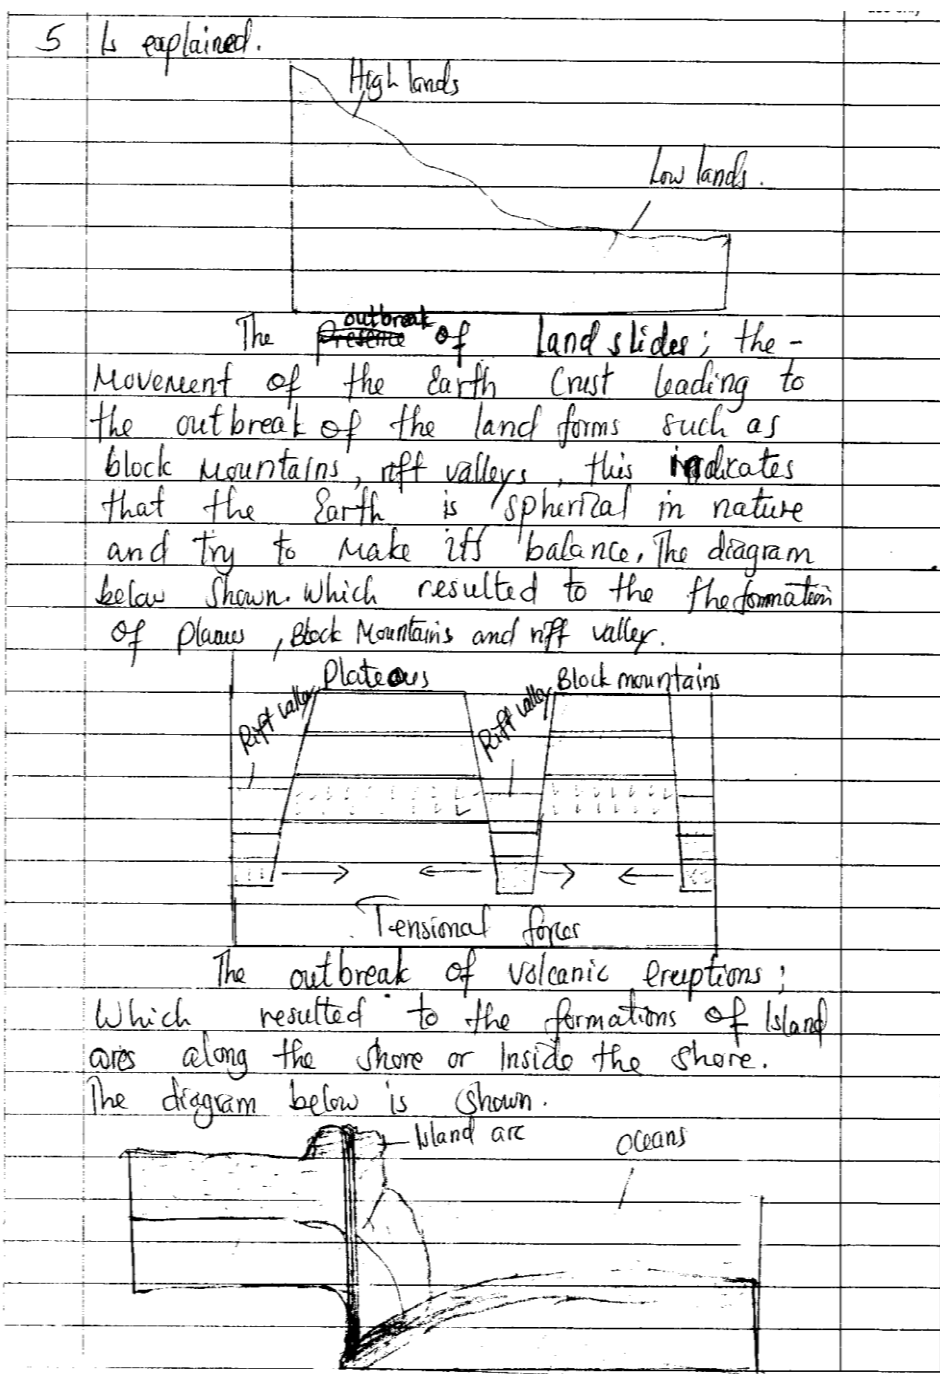 5 Is explained.
High lands
Low lands.
The presence outbreak of Land slides; the -
Movement of the Earth Crust leading to
the outbreak of the land forms such as
block Mountains, rift valleys, this indicates
that the Earth is spherical in nature
and try to make its balance. The diagram
below shown. Which resulted to the the formation
of , Block Mountains and rift valley.
Plateous Block mountains
Rift valley Rift valley
Tensional forces
The outbreak of volcanic eruptions;
Which resulted to the formations of Island
arcs along the shore or Inside the shore.
The diagram below is shown.
Island arc
Oceans